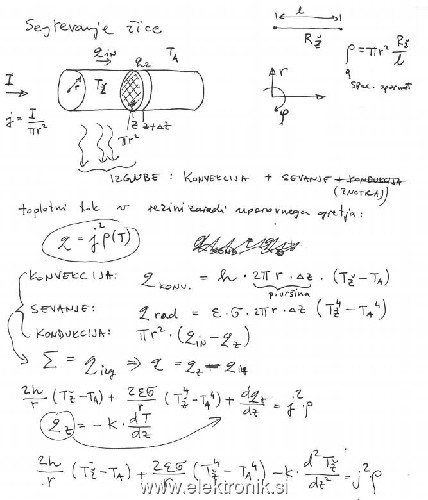 Segrevanje žice
l
R_ž
ρ = πr² R_ž/l
spec. upornost
q_in T_A
I r T_ž
j = I/πr²
z z+Δz
πr²
r
φ
IZGUBE: KONVEKCIJA + SEVANJE + KONDUKCIJA
(ZNOTRAJ)
toplotni tok v rezini zaradi uporovnega gretja:
q = j²ρ(T)
KONVEKCIJA: q_konv. = h · 2πr · Δz · (T_ž − T_A)
površina
SEVANJE: q_rad = ε · σ · 2πr · Δz (T_ž⁴ − T_A⁴)
KONDUKCIJA: πr² · (q_in − q_z)
Σ = q_izg ⇒ q = q_z − q_iz
2h/r (T_ž − T_A) + 2εσ/r (T_ž⁴ − T_A⁴) + dq_z/dz = j²ρ
q_z = −k · dT/dz
2h/r (T_ž − T_A) + 2εσ/r (T_ž⁴ − T_A⁴) − k · d²T_ž/dz² = j²ρ
www.elektronik.si